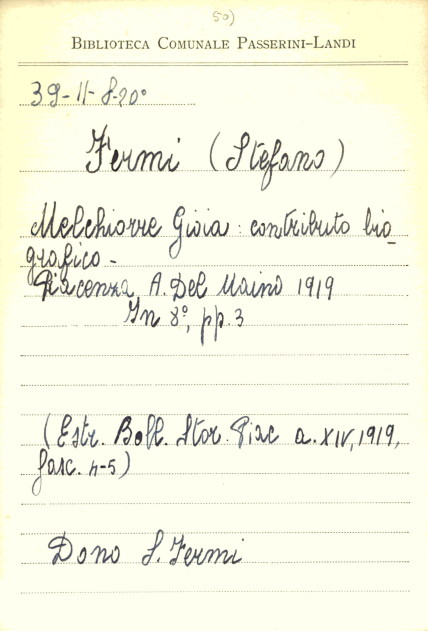 50)
BIBLIOTECA COMUNALE PASSERINI-LANDI
39-11-8-20°
Fermi (Stefano)
Melchiorre Gioia: contributo bio-
grafico -
Piacenza, A. Del Maino 1919
In 8°, pp. 3
(Estr. Boll. Stor. Piac a. XIV, 1919,
fasc. 4-5)
Dono S. Fermi